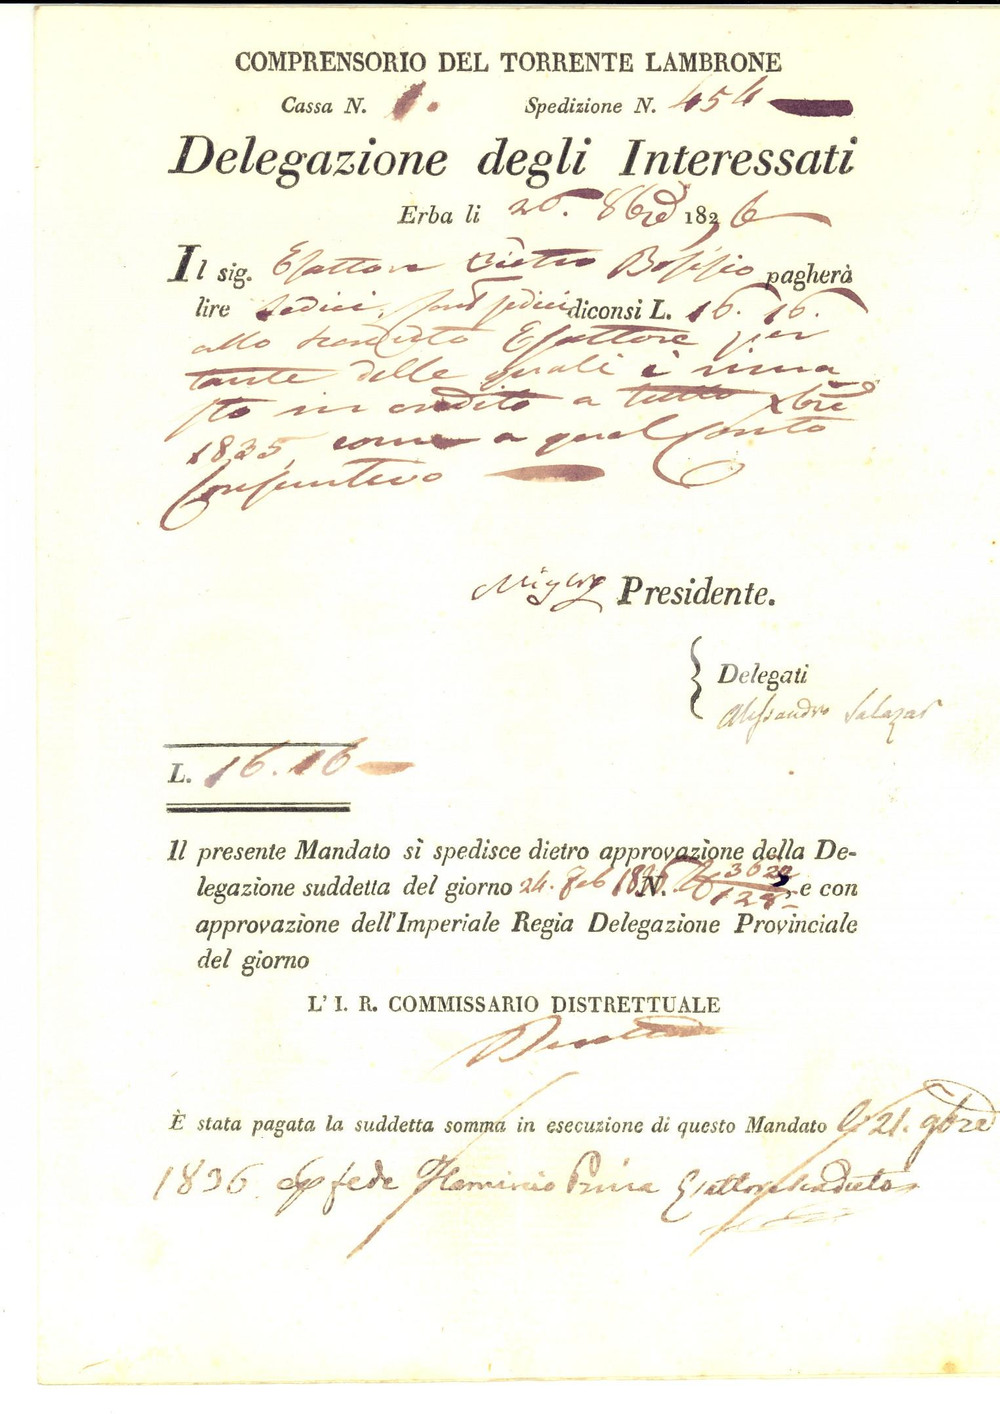 COMPRENSORIO DEL TORRENTE LAMBRONE
Cassa N. 1. Spedizione N. 454
Delegazione degli Interessati
Erba li 26. 8bre 1836
Il sig. Esattore Pietro Bossio pagherà
lire Sedici, sedici diconsi L. 16. 16.
allo scaduto Esattore per
tante delle quali è rima
sto in credito a tutto xbre
1835, come a qual Conto
Consuntivo
Presidente.
Delegati
Alessandro Salazar
L. 16. 16
Il presente Mandato si spedisce dietro approvazione della De-
legazione suddetta del giorno 24. Feb 1836 N. 3629/128, e con
approvazione dell'Imperiale Regia Delegazione Provinciale
del giorno
L' I. R. COMMISSARIO DISTRETTUALE
È stata pagata la suddetta somma in esecuzione di questo Mandato li 21. 9bre
1836 fede Flaminio Prina Esattore scaduto